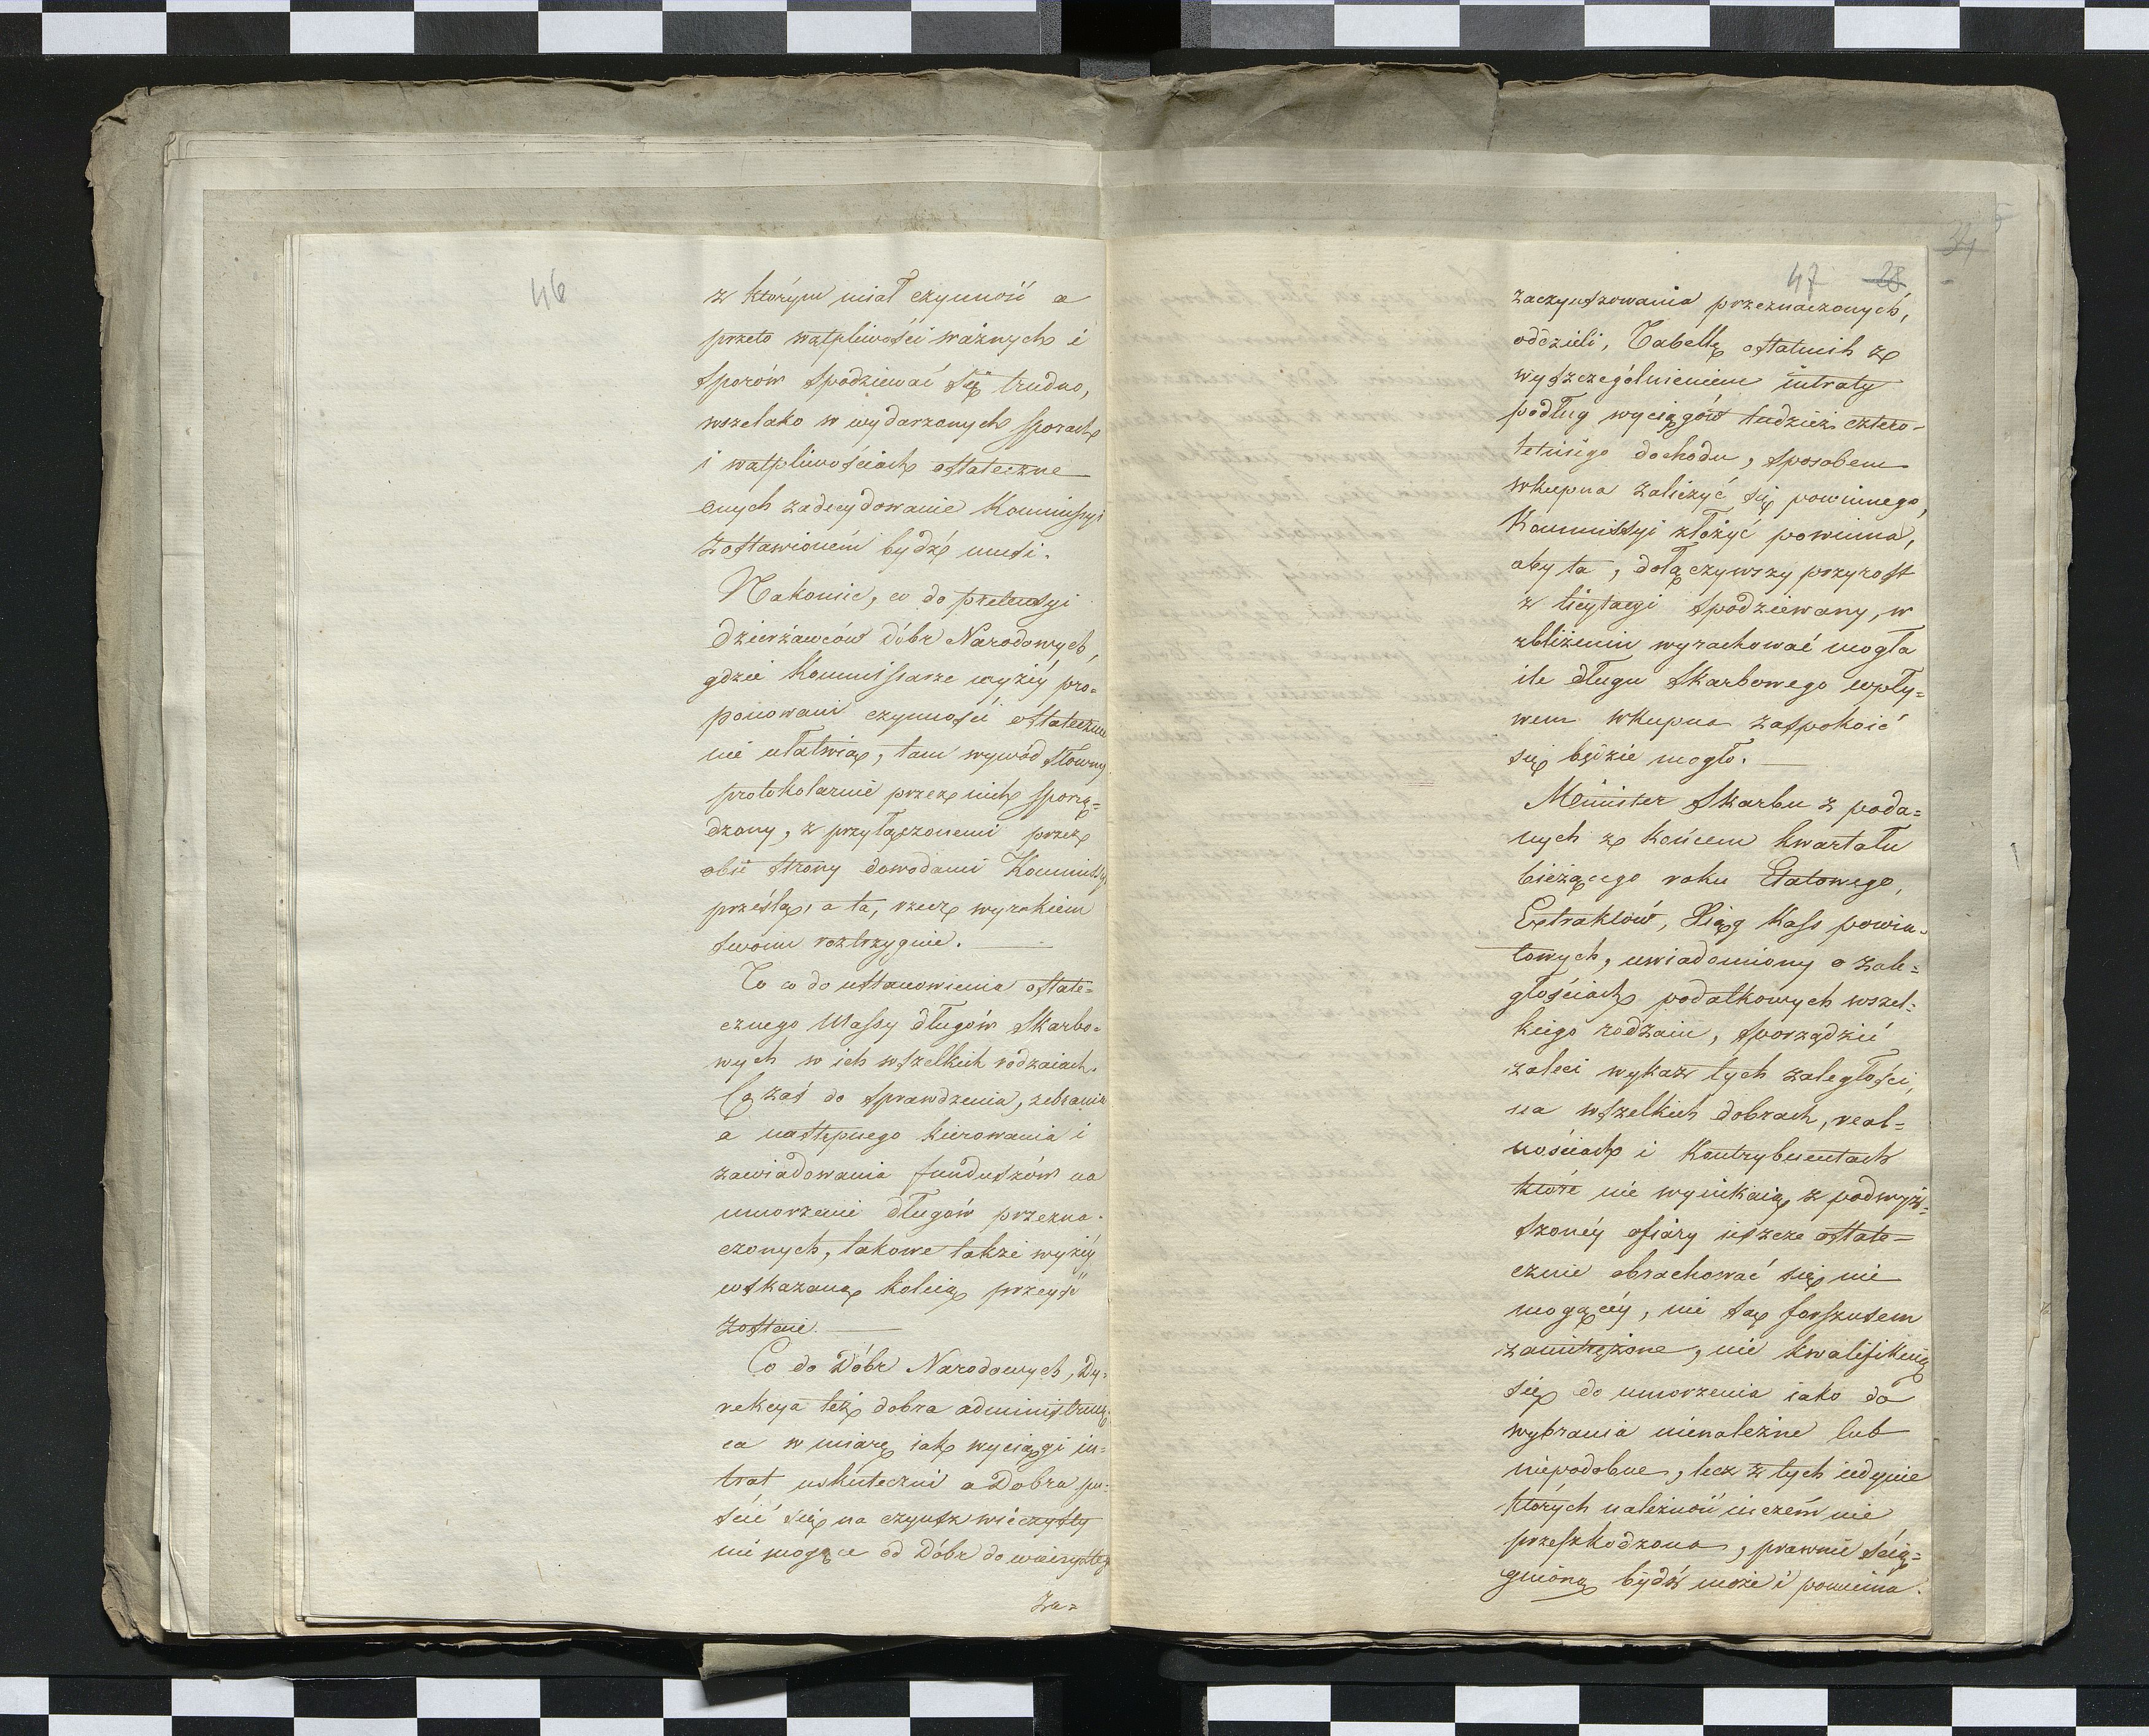 46
z którym miał czynność a
przeto wątpliwości ważnych i
sporów spodziewać się trudno,
wszelako w wydarzonych sporach
i wątpliwościach ostateczne
onych zadecydowanie Kommissyi
zostawioném bydź musi.
Nakoniec, co do pretensyi
dzierżawców Dóbr Narodowych,
gdzie Kommissarze wyżéy pro=
ponowani czynności ostatecznie
nie ułatwią, tam wywód słowny
protokolarnie przez nich sporzą=
dzony, z przyłączonemi przez
obie strony dowodami Kommissyi
prześlą, a ta, rzecz wyrokiem
swoim roztrzygnie.
To co do ustanowienia ostate=
cznego Massy długów Skarbo=
wych w ich wszelkich rodzaiach.
Co zaś do sprawdzenia, zebrania
a następnego kierowania i
zawiadowania funduszów na
umorzenie długów przezna=
czonych, takowe także wyżéy
wskazaną koleią przeyść
zostanie.
Co do Dóbr Narodowych, Dy=
rekcya też dobra administruią=
ca w miarę iak wyciągi in=
trat uskuteczni a Dobra pu=
ścić się na czynsz wieczysty
nie mogące od Dóbr do wieczystego
Za=
47 28
34
zaczynszowania przeznaczonych,
oddzieli, Tabellę ostatnich z
wyszczególnieniem intraty
podług wyciągów tudzież cztero=
letniego dochodu, sposobem
wkupna zaliczyć się powinnego,
Kommissyi złożyć powinna,
aby ta, dołączywszy przyrost
z licytacyi spodziewany, w
zbliżeniu wyrachować mogła
ile długu Skarbowego wpły=
wem wkupna zaspokoić
się będzie mogło.
Minister Skarbu z poda=
nych z końcem kwartału
bieżącego roku Etatowego,
Extraktów, Xiąg Kass powia=
towych, uwiadomiony o zale=
głościach podatkowych wszel=
kiego rodzaiu, sporządzić
zaleci wykaz tych zaległości,
na wszelkich dobrach, real=
nościach i Kontrybuentach
które nie wynikaią z podwyż=
szonéy ofiary ieszcze ostate=
cznie obrachować się nie
mogącéy, nie są forszusem
zamitrężone, nie kwalifikuią
się do umorzenia iako do
wybrania nienależne lub
niepodobne, lecz z tych iedynie
których należność niczem nie
przeszkodzona, prawnie ścią=
gnioną bydź może i powinna.